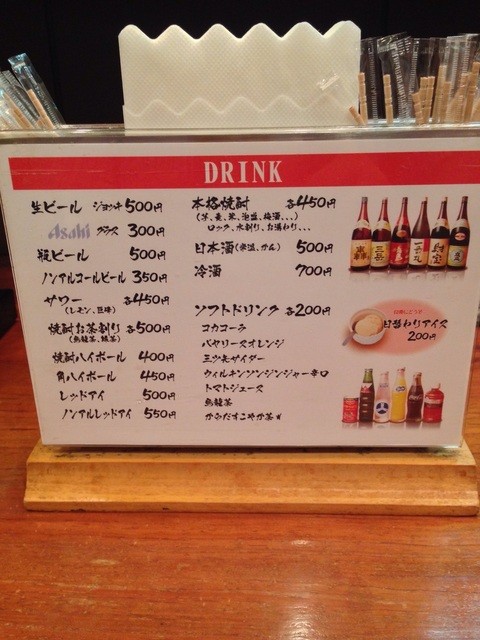 DRINK
生ビール ジョッキ 500円
Asahi グラス 300円
瓶ビール 500円
ノンアルコールビール 350円
サワー 各450円
(レモン、巨峰)
焼酎お茶割り 各500円
(烏龍茶、緑茶)
焼酎ハイボール 400円
角ハイボール 450円
レッドアイ 500円
ノンアルレッドアイ 550円
本格焼酎 各450円
(芋、麦、米、泡盛、梅酒...)
ロック、水割り、お湯わり...
日本酒(常温、かん) 500円
冷酒 700円
ソフトドリンク 各200円
コカコーラ
バヤリースオレンジ
三ツ矢サイダー
ウィルキンソンジンジャー辛口
トマトジュース
烏龍茶
からだすこやか茶W
お口直しにどうぞ
日替わりアイス
200円